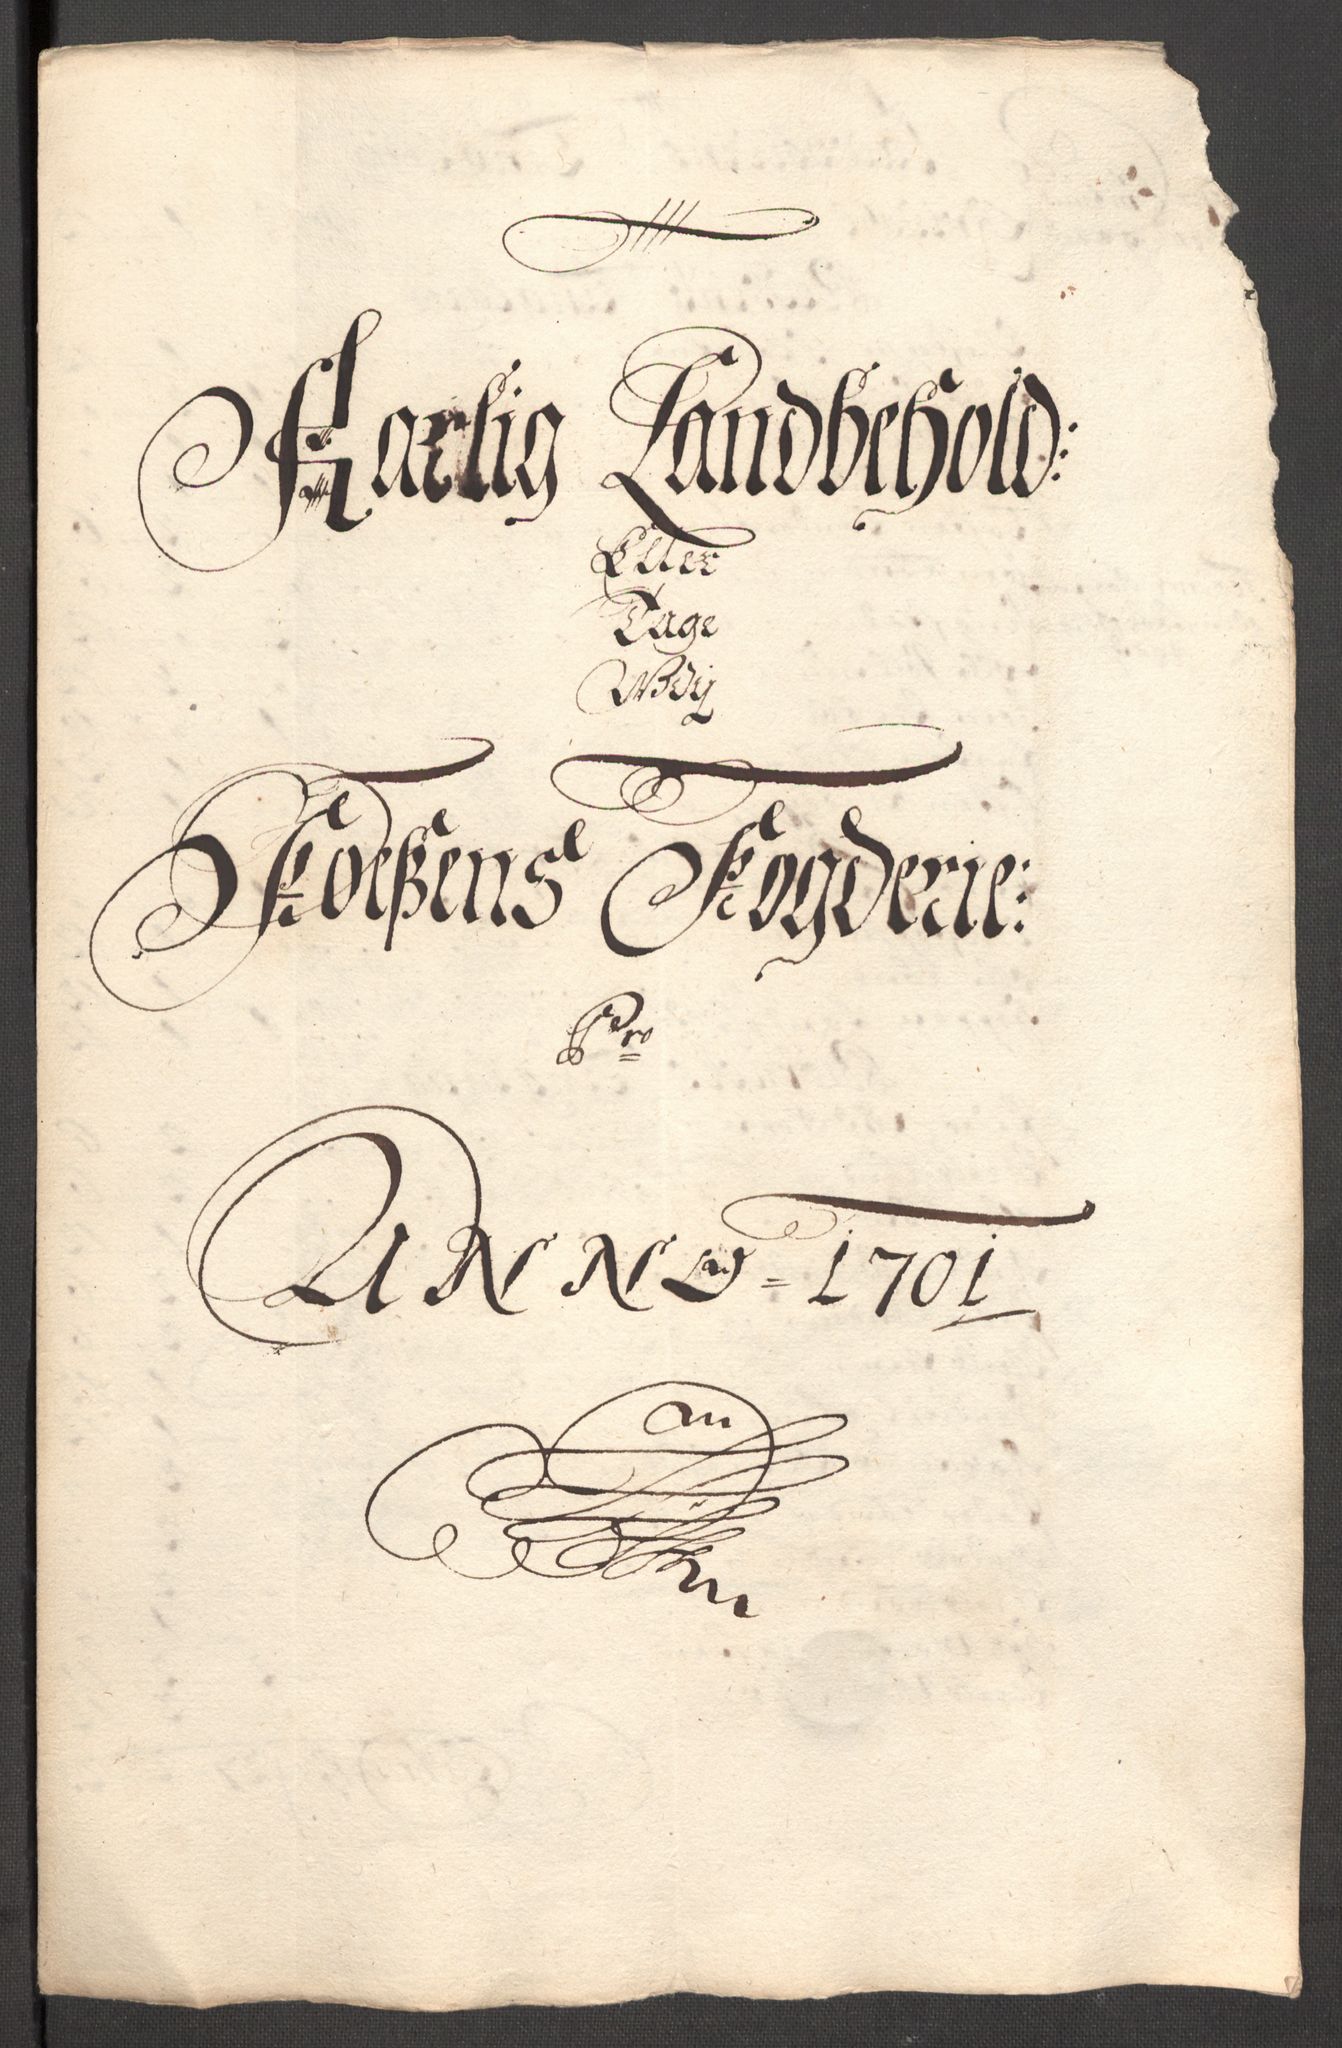 Aarlig Landbehold:
Eller
Tage
Wdj
Foeßens Fogderie:
Pro
ANNO = 1701